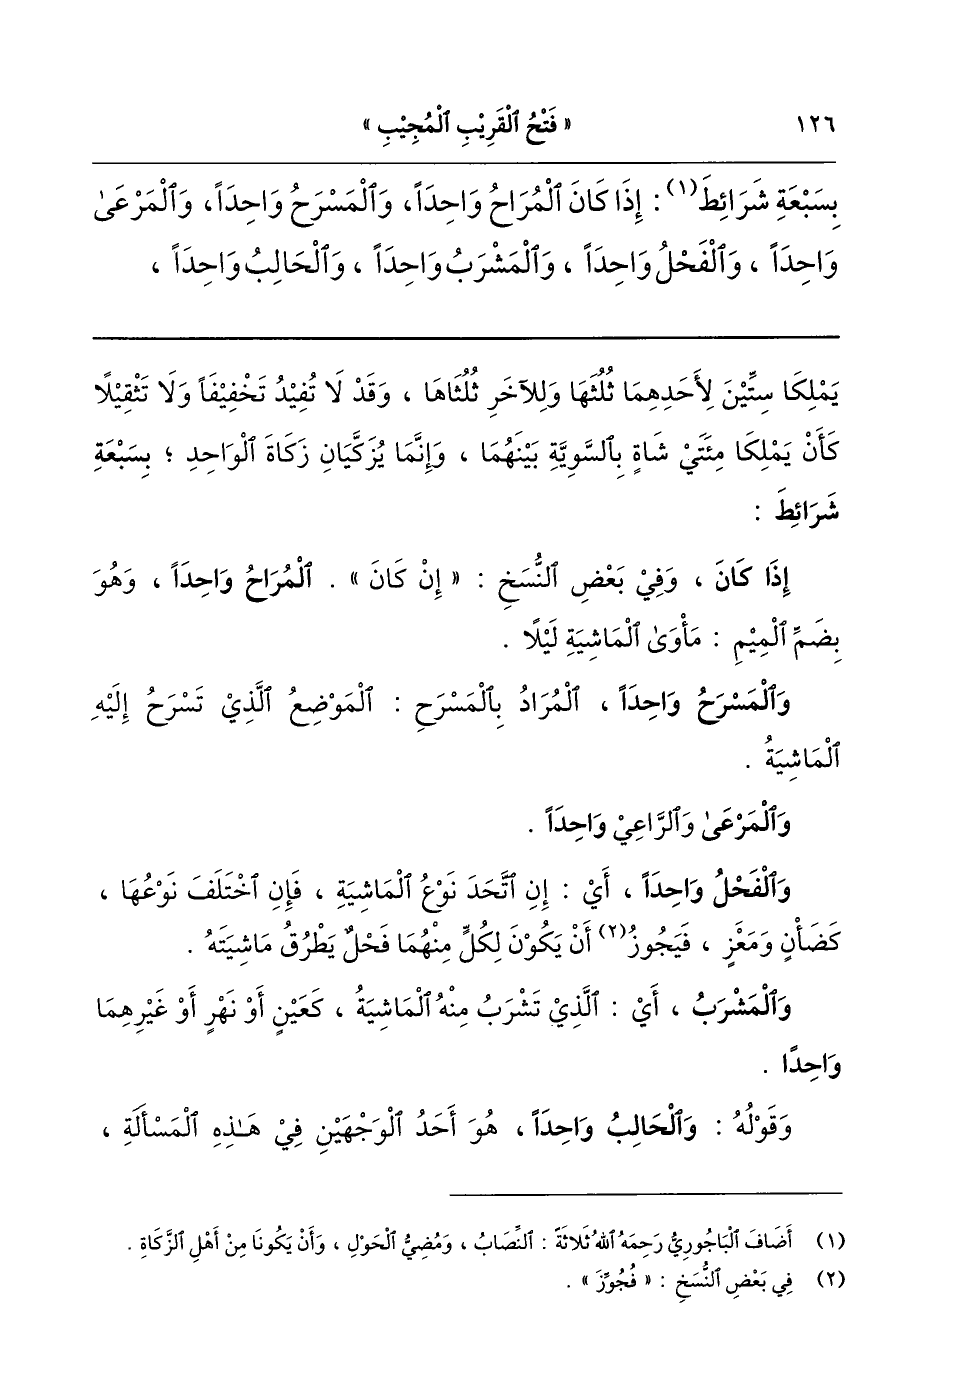 ١٢٦ « فَتْحُ ٱلْقَرِيْبِ ٱلْمُجِيْبِ »
بِسَبْعَةِ شَرَائِطَ(١) : إِذَا كَانَ ٱلْمُرَاحُ وَاحِدَاً، وَٱلْمَسْرَحُ وَاحِدَاً، وَٱلْمَرْعَىٰ
وَاحِدَاً ، وَٱلْفَحْلُ وَاحِدَاً ، وَٱلْمَشْرَبُ وَاحِدَاً ، وَٱلْحَالِبُ وَاحِدَاً ،
يَمْلِكَا سِتِّيْنَ لِأَحَدِهِمَا ثُلُثَهَا وَلِلآخَرِ ثُلُثَاهَا ، وَقَدْ لَا تُفِيْدُ تَخْفِيْفَاً وَلَا تَثْقِيْلًا
كَأَنْ يَمْلِكَا مِئَتَيْ شَاةٍ بِٱلسَّوِيَّةِ بَيْنَهُمَا ، وَإِنَّمَا يُزَكَّيَانِ زَكَاةَ ٱلْوَاحِدِ ؛ بِسَبْعَةِ
شَرَائِطَ :
إِذَا كَانَ ، وَفِيْ بَعْضِ ٱلنُّسَخِ : « إِنْ كَانَ » . ٱلْمُرَاحُ وَاحِدَاً ، وَهُوَ
بِضَمِّ ٱلْمِيْمِ : مَأْوَىٰ ٱلْمَاشِيَةِ لَيْلًا .
وَٱلْمَسْرَحُ وَاحِدَاً ، ٱلْمُرَادُ بِٱلْمَسْرَحِ : ٱلْمَوْضِعُ ٱلَّذِيْ تَسْرَحُ إِلَيْهِ
ٱلْمَاشِيَةُ .
وَٱلْمَرْعَىٰ وَٱلرَّاعِيْ وَاحِدَاً .
وَٱلْفَحْلُ وَاحِدَاً ، أَيْ : إِنِ ٱتَّحَدَ نَوْعُ ٱلْمَاشِيَةِ ، فَإِنِ ٱخْتَلَفَ نَوْعُهَا ،
كَضَأْنٍ وَمَعْزٍ ، فَيَجُوزُ(٢) أَنْ يَكُوْنَ لِكُلٍّ مِنْهُمَا فَحْلٌ يَطْرُقُ مَاشِيَتَهُ .
وَٱلْمَشْرَبُ ، أَيْ : ٱلَّذِيْ تَشْرَبُ مِنْهُ ٱلْمَاشِيَةُ ، كَعَيْنٍ أَوْ نَهْرٍ أَوْ غَيْرِهِمَا
وَاحِدًا .
وَقَوْلُهُ : وَٱلْحَالِبُ وَاحِدَاً ، هُوَ أَحَدُ ٱلْوَجْهَيْنِ فِيْ هَـٰذِهِ ٱلْمَسْأَلَةِ ،
(١) أَضَافَ ٱلْبَاجُورِيُّ رَحِمَهُ ٱللهُ ثَلَاثَةً : ٱلنِّصَابُ ، وَمُضِيُّ ٱلْحَوْلِ ، وَأَنْ يَكُونَا مِنْ أَهْلِ ٱلزَّكَاةِ .
(٢) فِي بَعْضِ ٱلنُّسَخِ : « فُجُوِّزَ » .